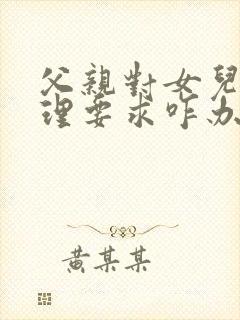 父親對女兒
理要求咋办
黃某某